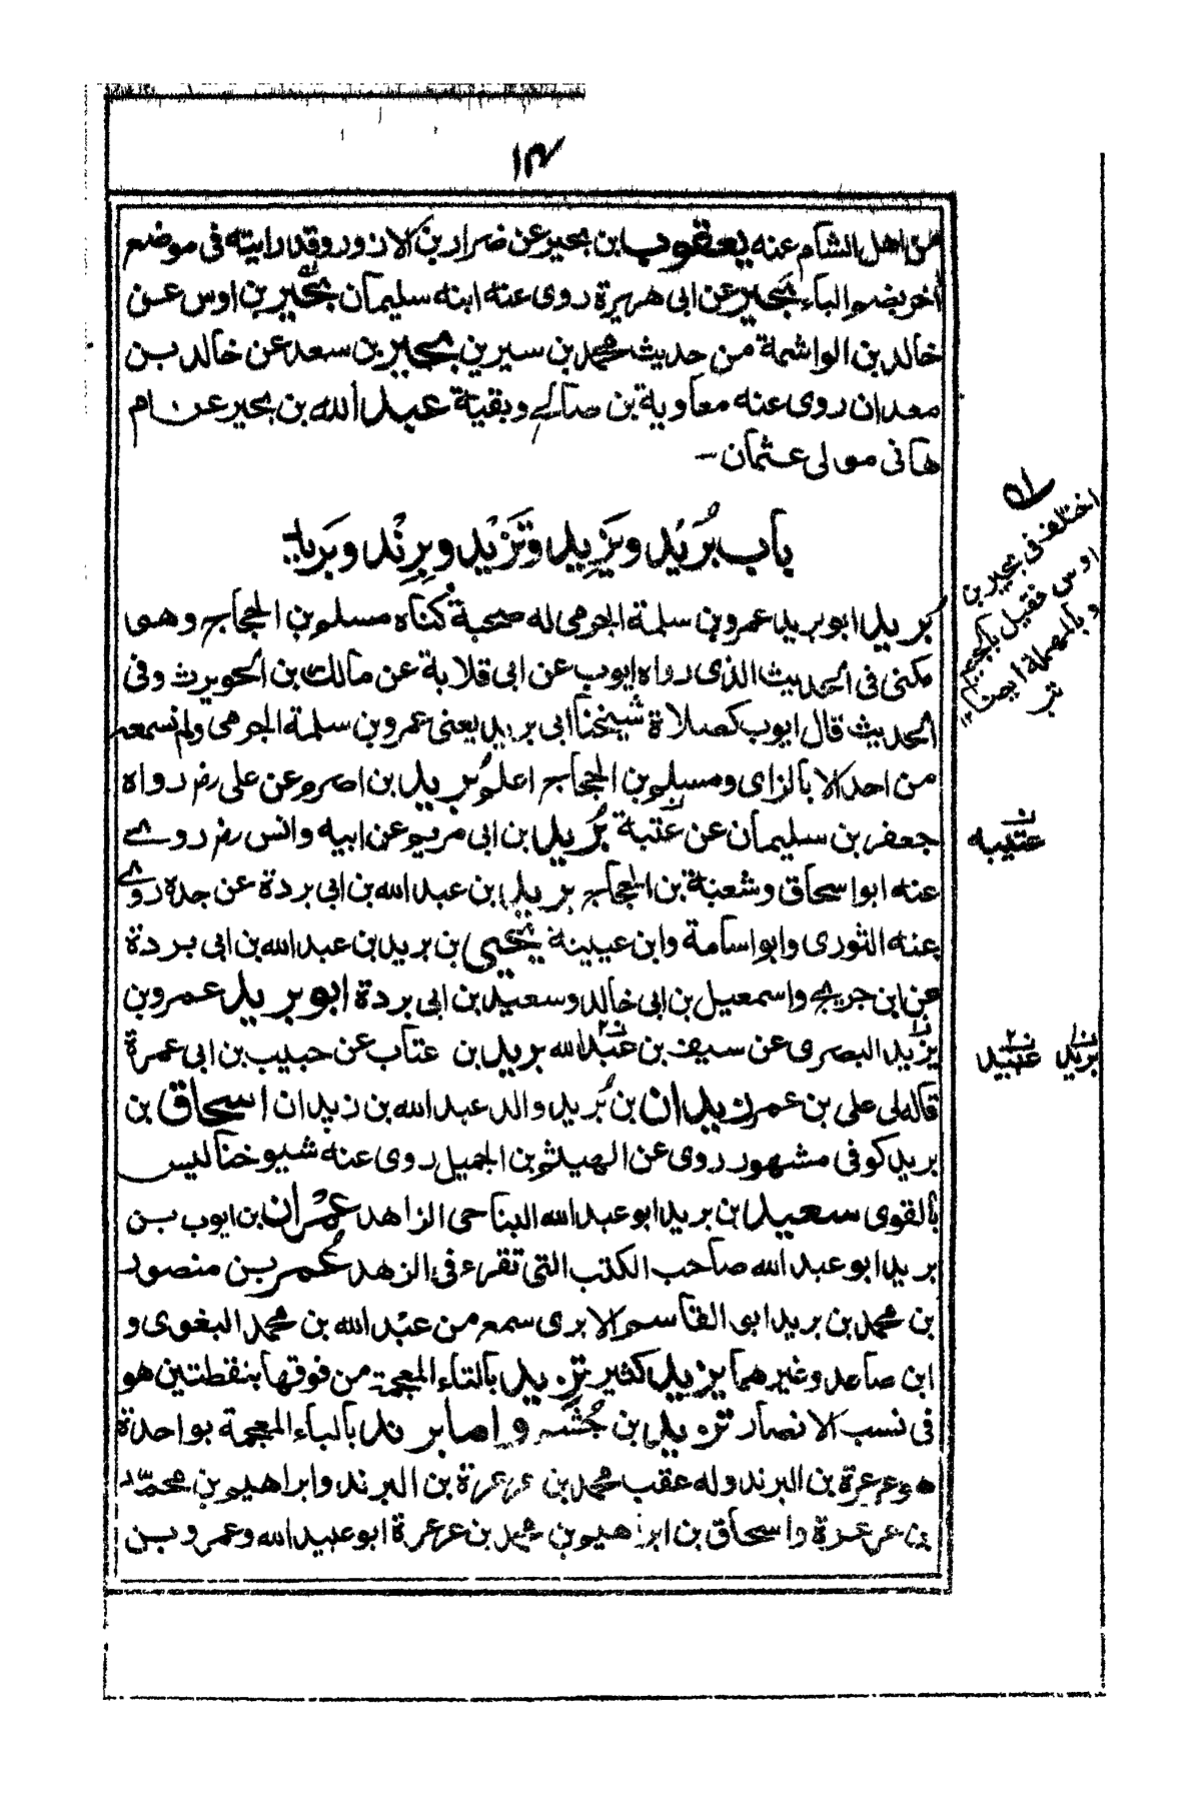 ١٣
من اهل الشام عنه يعقوب بن بحير عن ضرار بن الازور وقد رايته فى موضع
اخر بضم الباء بُحير عن ابى هريرة روى عنه ابنه سليمان بحير بن اوس عن
خالد بن الواشمة من حديث محمد بن سيرين بحير بن سعد عن خالد بن
معدان روى عنه معاوية بن صالح وبقية عبد الله بن بحير عن ام
هانى مولى عثمان -
باب بُرَيْد ويَزِيد وتَزِيْد وبِرِنْد وبَرِيد
بريد ابو بريد عمرو بن سلمة الجرمى له صحبة كناه مسلم بن الحجاج وهو
مكنى فى الحديث الذى رواه ايوب عن ابى قلابة عن مالك بن الحويرث وفى
الحديث قال ايوب كصلاة شيخنا ابى بريد يعنى عمرو بن سلمة الجرمى ولم نسمعه
من احد الا بالزاى ومسلم بن الحجاج اعلم بريد بن اصرم عن على رض رواه
جعفر بن سليمان عن عتبة بُريد بن ابى مريم عن ابيه وانس رض روى
عنه ابو اسحاق وشعبة بن الحجاج بريد بن عبد الله بن ابى بردة عن جده روى
عنه الثورى وابو اسامة وابن عيينة يحيى بن بريد بن عبد الله بن ابى بردة
عن ابن جريج واسمعيل بن ابى خالد وسعيد بن ابى بردة ابو بريد عمرو بن
يزيد البصرى عن سيف بن عبد الله بريد بن عتاب عن حبيب بن ابى عمرة
قاله لى على بن عمر زيدان بن بُريد والد عبد الله بن زيدان اسحاق بن
بريد كوفى مشهور روى عن الهيثم بن الجميل روى عنه شيوخنا ليس
بالقوى سعيد بن بريد ابو عبد الله البناحى الزاهد عمران بن ايوب بن
بريد ابو عبد الله صاحب الكتب التى تقرء فى الزهد عُمر بن منصور
بن محمد بن بريد ابى القاسم الابرى سمع من عبد الله بن محمد البغوى و
ابن صاعد وغيرهما يزيد كثير تزيد بالتاء المعجمة من فوقها بنقطتين هو
فى نسب الانصار تزيد بن جُشَم واما برند بالباء المعجمة بواحدة
هو عرعرة بن البرند وله عقب محمد بن عرعرة بن البرند وابراهيم بن محمّد
بن عرعرة واسحاق بن ابراهيم بن محمد بن عرعرة ابو عبيد الله وعمرو بن
اختلف فى بحير بن
اوس فقيل بالجيم
وبالمهملة ايضا ١٢
عتيبه
بريد عبيد